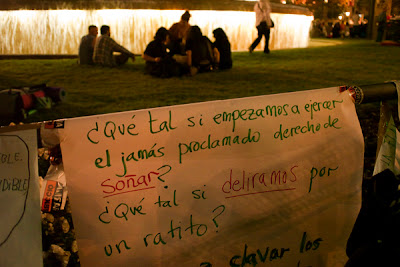 ¿Qué tal si empezamos a ejercer
el jamás proclamado derecho de
Soñar?
¿Qué tal si deliramos por
un ratito?
clavar los
IBLE.